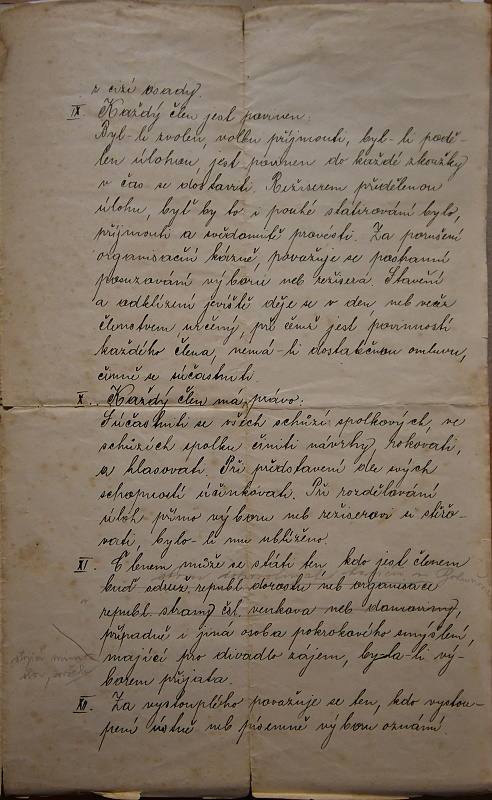 z cizí osady.
IX. Každý člen jest povinen:
Byl-li zvolen, volbu přijmouti, byl-li podě-
len úlohou, jest povinen do každé zkoušky
v čas se dostaviti. Režiserem přidělenou
úlohu, byť by to i pouhé statování bylo,
přijmouti a svědomitě provésti. Za porušení
organisační kázně, považuje se
posuzování výboru neb režisera. Stavění
a odklízení jeviště děje se v den neb večer
členstvem určený, při čemž jest povinností
každého člena, nemá-li dostatečnou omluvu,
činně se súčastniti.
X. Každý člen má právo:
Súčastniti se všech schůzí spolkových, ve
schůzích spolku činiti návrhy, rokovati,
a hlasovati. Při představení dle svých
schopností účinkovati. Při rozdělování
úloh přímo výboru neb režiserovi si stěžo-
vati, bylo-li mu ublíženo.
XI. Členem může se státi ten, kdo jest členem
buď sdruž. republ. dorostu neb organisace
republ. strany čsl. venkova neb domoviny,
případně i jiná osoba pokrokového smýšlení,
mající pro divadlo zájem, byla-li vý-
borem přijata.
XII. Za vystouplého považuje se ten, kdo vystou-
pení ústně neb písemně výboru oznámí